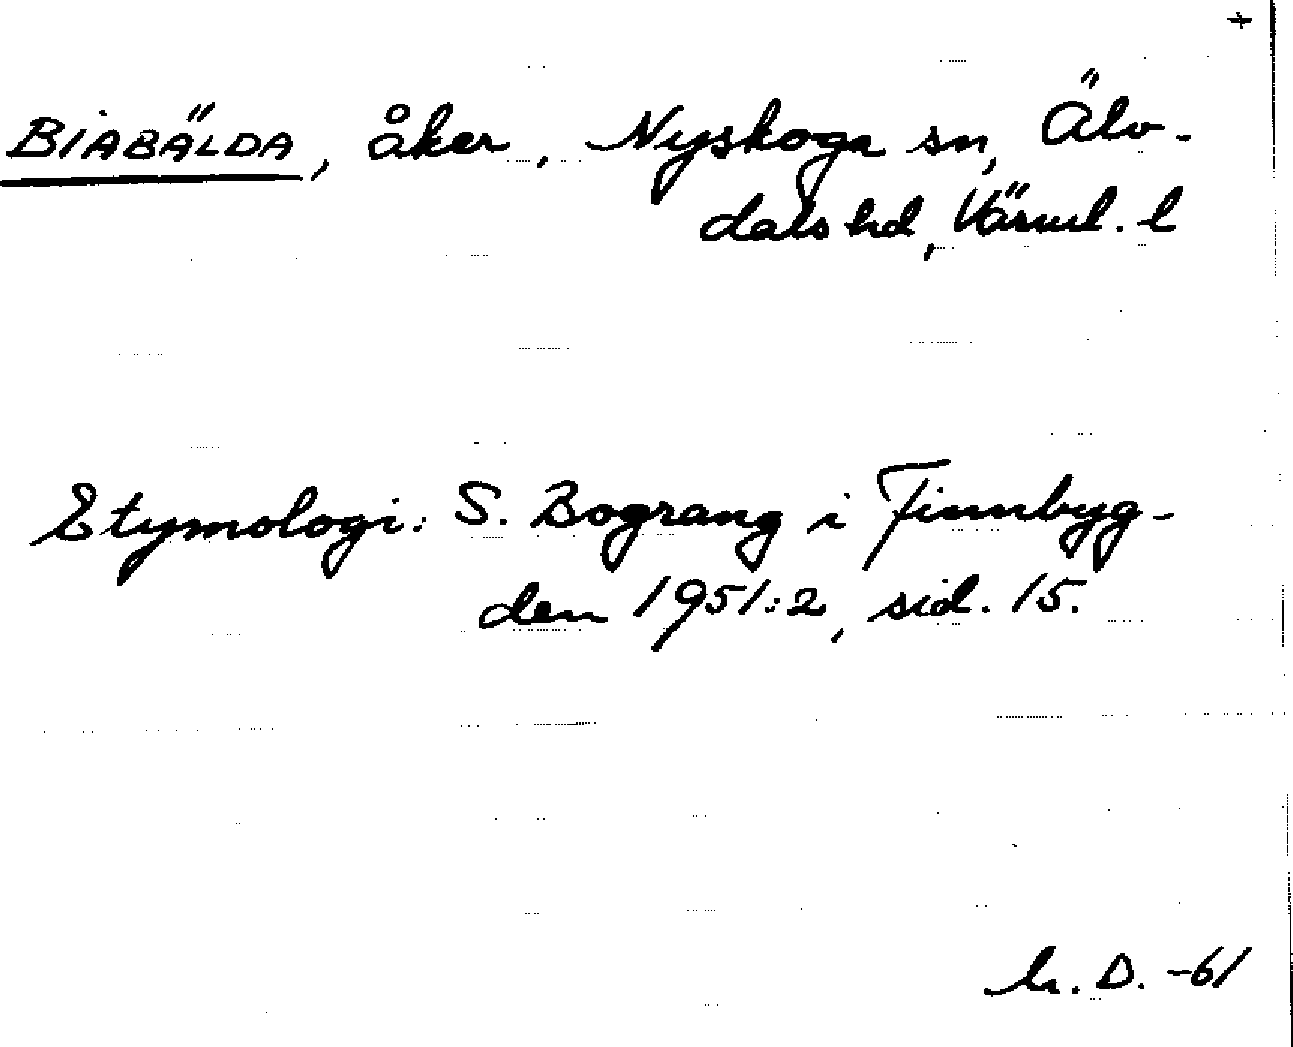 +
BIABÄLDA, åker, Nyskoga sn, Älv-
dals hd, Värml. l
Etymologi: S. Bograng i Finnbyg-
den 1951:2, sid. 15.
D. -61